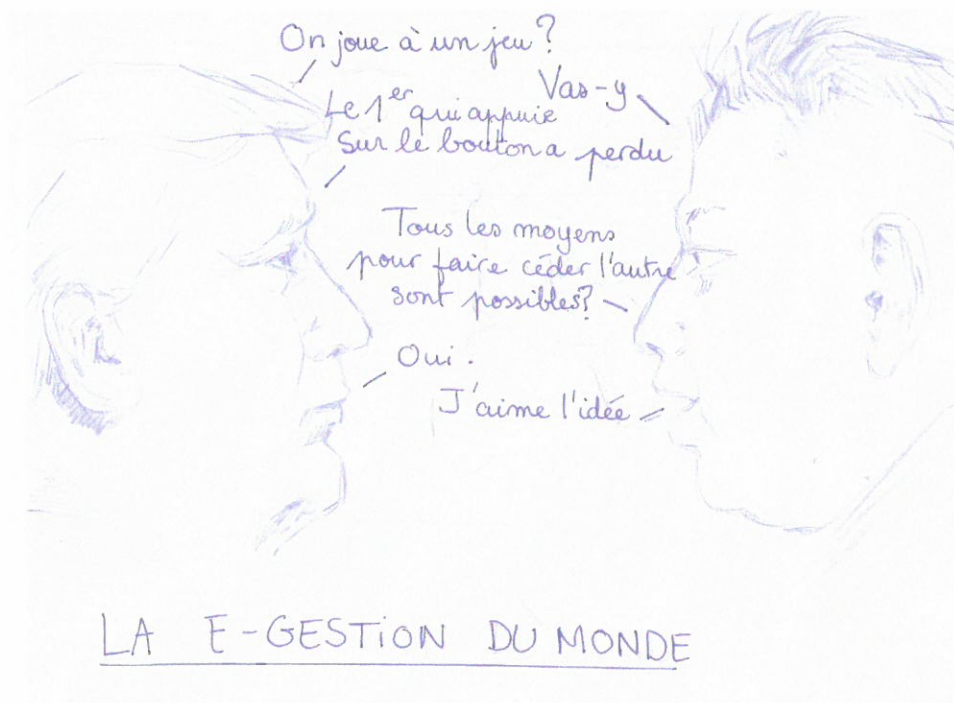 On joue à un jeu?
Vas-y
Le 1er qui appuie
Sur le bouton a perdu
Tous les moyens
pour faire céder l'autre
sont possibles?
Oui.
J'aime l'idée
LA E-GESTION DU MONDE